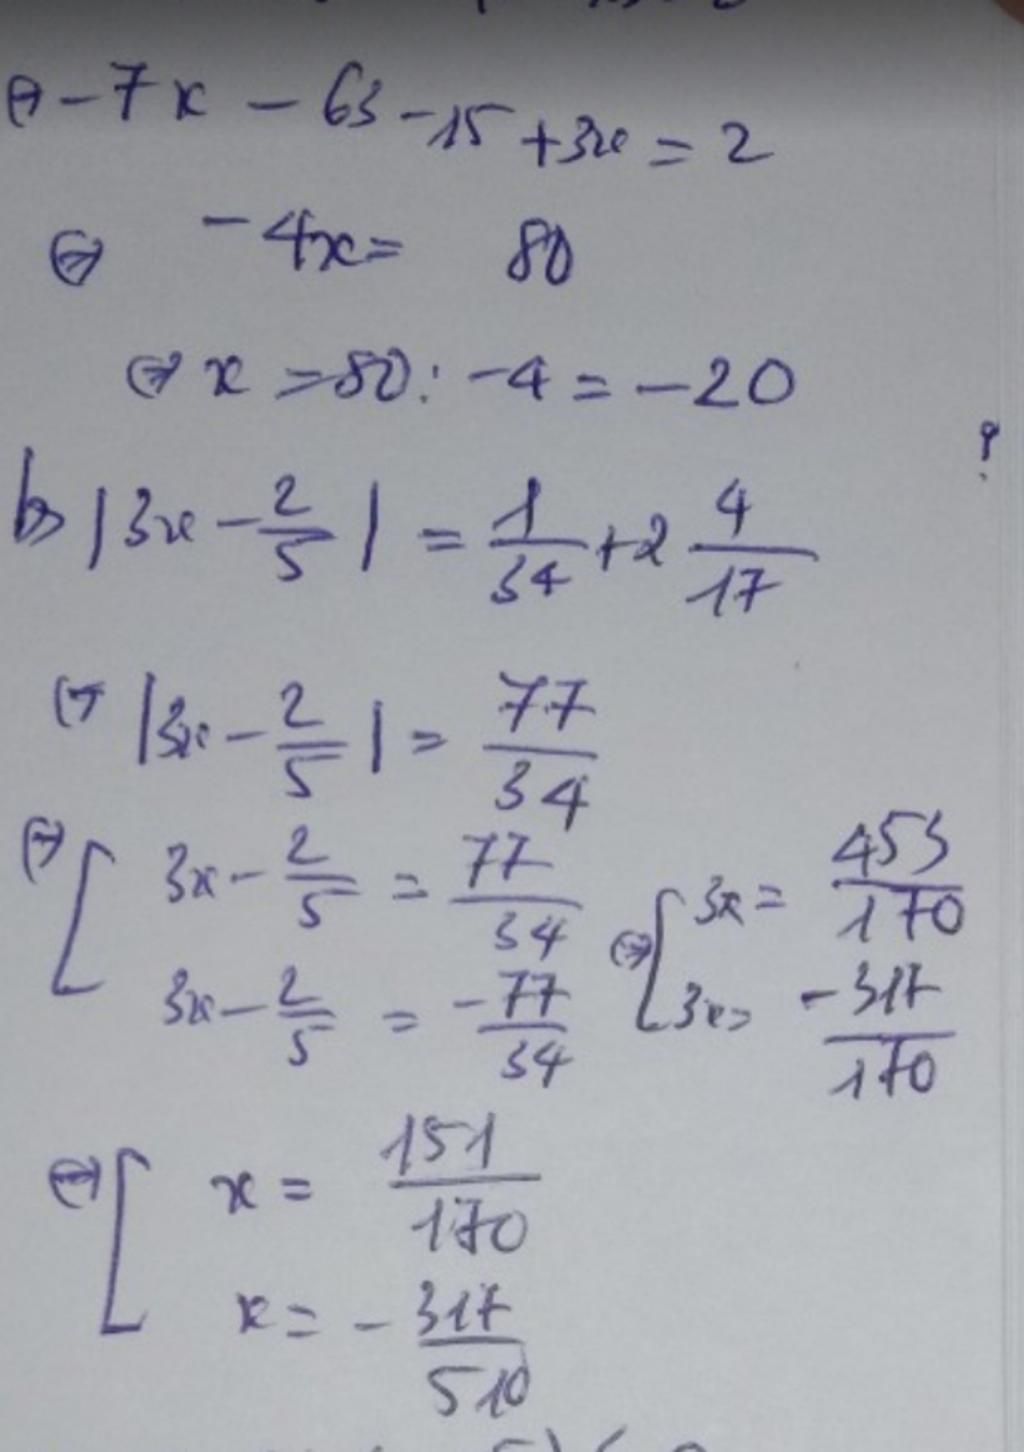 ⇔ -7x - 63 - 15 + 3x = 2
⇔ -4x = 80
⇔ x = 80 : -4 = -20
b) |3x - 2/5| = 1/34 + 2 4/17
⇔ |3x - 2/5| = 77/34
⇔ [ 3x - 2/5 = 77/34 ⇔ [ 3x = 453/170
3x - 2/5 = -77/34 3x = -317/170
⇔ [ x = 151/170
x = -317/510